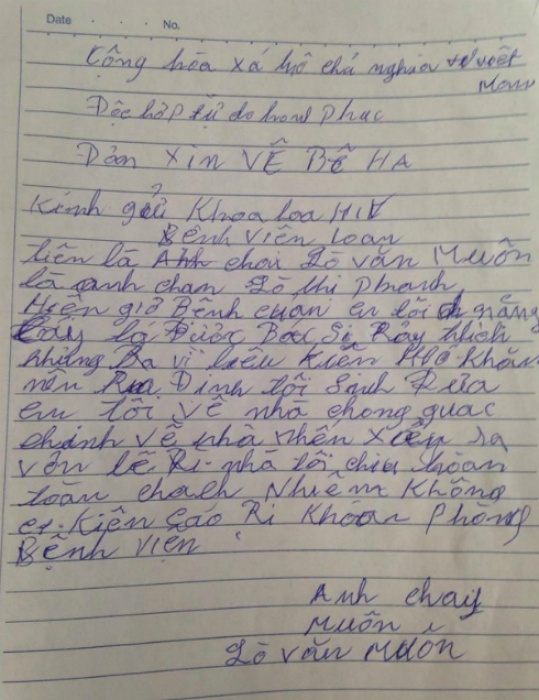 Date . . . No.
Cộng hòa xá hộ chủ nghia việt
Mam
Độc hợp tự do hanh Phuc
Đản xin VỀ BỀ HA
Kính gửi Khoa loa HIV
Bệnh Viên loan
tiên là Anh chai Lò văn Muôn
là anh chan Lò thi Phanh
Hiên giờ Bênh cuan em tôi đa năng
lá Được Bác Si Rảy thich
nhưng Ba vì kiên Khăn
nên Đinh tôi Sinh Rưa
em tôi về nhà chong guac
chinh về nhà nhên xiển ra
vớn lề Ri nhà tôi chiu hoan
toàn chach Nhiêm Không
Kiên Cáo Ri Khoan Phòng
Bệnh Viên
Anh chay
Muôn
Lò văn Muôn